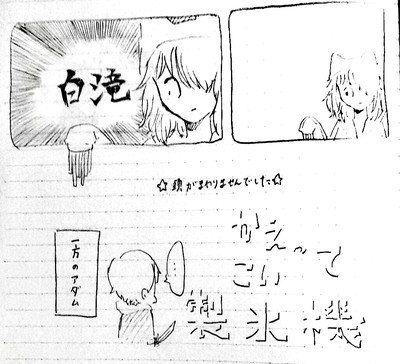 白滝
☆頭がまわりませんでした☆
一方のアダム
…
かえってこい
製氷機